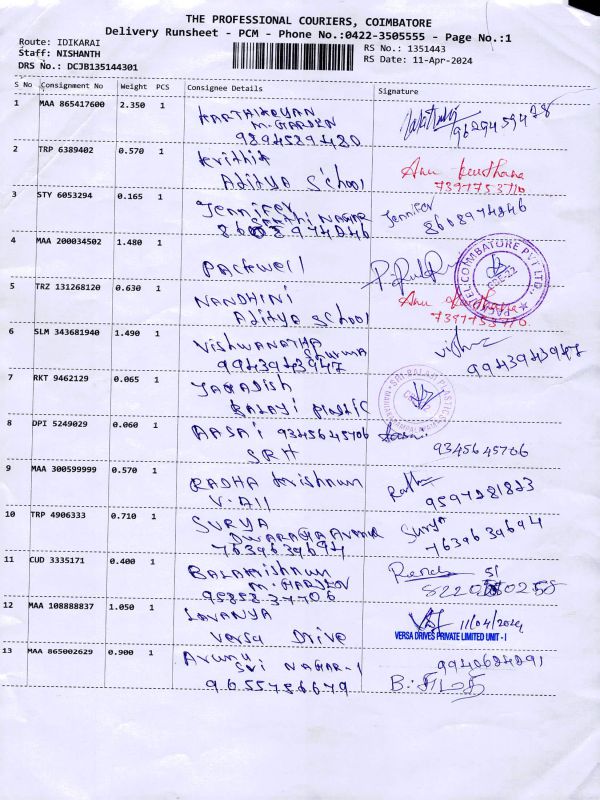 THE PROFESSIONAL COURIERS, COIMBATORE
Delivery Runsheet - PCM - Phone No.:0422-3505555 - Page No.:1
Route: IDIKARAI
RS No.: 1351443
Staff: NISHANTH
RS Date: 11-Apr-2024
DRS No.: DCJB135144301
S No Consignment No Weight PCS Consignee Details Signature
1 MAA 865417600 2.350 1 KARTHIKEYAN
M. GARDEN
9894589480
9629459478
2 TRP 6389402 0.570 1 Krithik
Aditya School
Anu
7397753710
3 STY 6053294 0.165 1 Jennifer
NAGAR
8608974846
Jennifer
8608974846
4 MAA 200034502 1.480 1 Packwell
COIMBATORE PVT LTD
5 TRZ 131268120 0.630 1 NANDHINI
Aditya School
Anu
7397753710
6 SLM 343681940 1.490 1 Vishwanatha
Sharma
9943943947
9943943947
7 RKT 9462129 0.065 1 Jagadish
Balaji Plastic
SRI BALAJI PLASTIC
8 DPI 5249029 0.060 1 AASAI 9345645706
SRH
9345645706
9 MAA 300599999 0.570 1 RADHA Krishnan
V. All
9597281823
10 TRP 4906333 0.710 1 SURYA
DWARAGA Avenue
7639639694
Surya
7639639694
11 CUD 3335171 0.400 1 Balakrishnan
M. GARDEN
9585837706
12 MAA 108888837 1.050 1 LAVANYA
Versa Drive
11/04/2024
VERSA DRIVES PRIVATE LIMITED UNIT - I
13 MAA 865002629 0.900 1 Arunu
Sri NAGAR-1
9655756679
9940684891